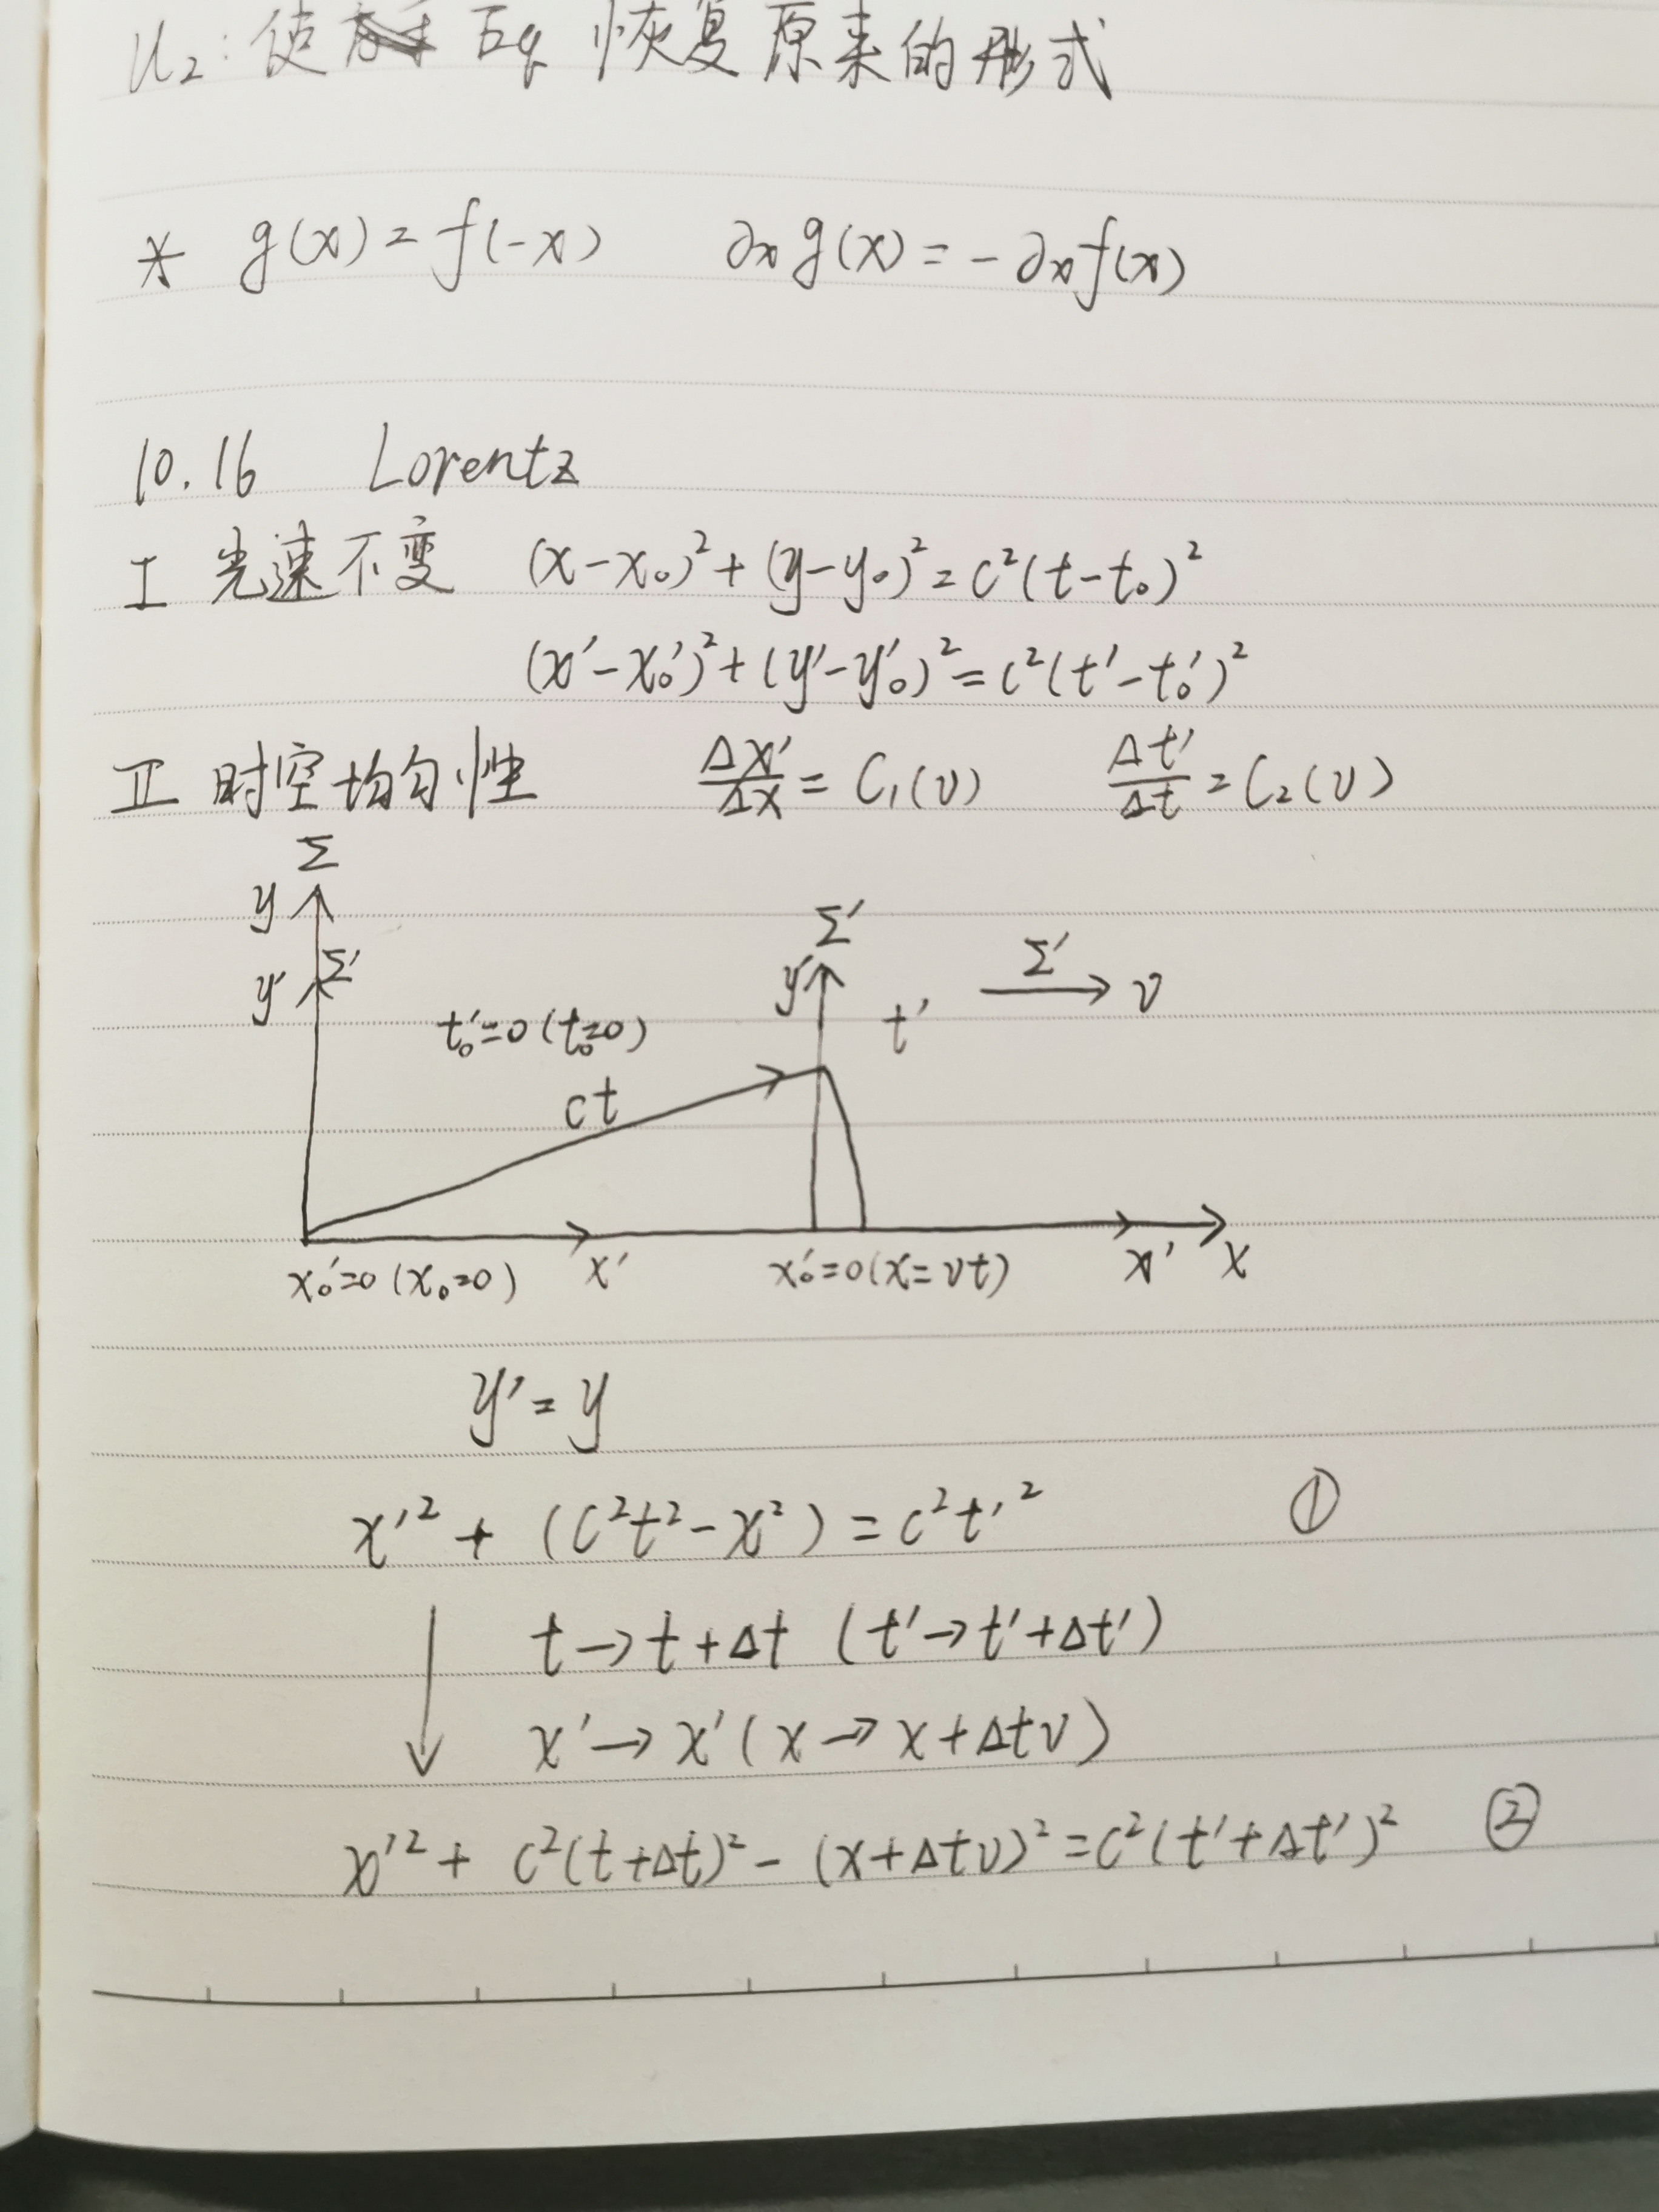 U₂: 使 Eq 恢复原来的形式
* g(x) = f(-x) ∂x g(x) = - ∂x f(x)
10.16 Lorentz
I 光速不变 (x-x₀)² + (y-y₀)² = c²(t-t₀)²
(x'-x₀')² + (y'-y₀')² = c²(t'-t₀')²
II 时空均匀性 Δx'/Δx = C₁(v) Δt'/Δt = C₂(v)
Σ
y
Σ'
Σ'
y' Σ'
y'
v
t₀'=0 (t₀=0)
t'
ct
x₀'=0 (x₀=0) x' x₀'=0 (x=vt) x' x
y' = y
x'² + (c²t² - x²) = c²t'² ①
t → t+Δt (t' → t'+Δt')
x' → x' (x → x+Δtv)
x'² + c²(t+Δt)² - (x+Δtv)² = c²(t'+Δt')² ②